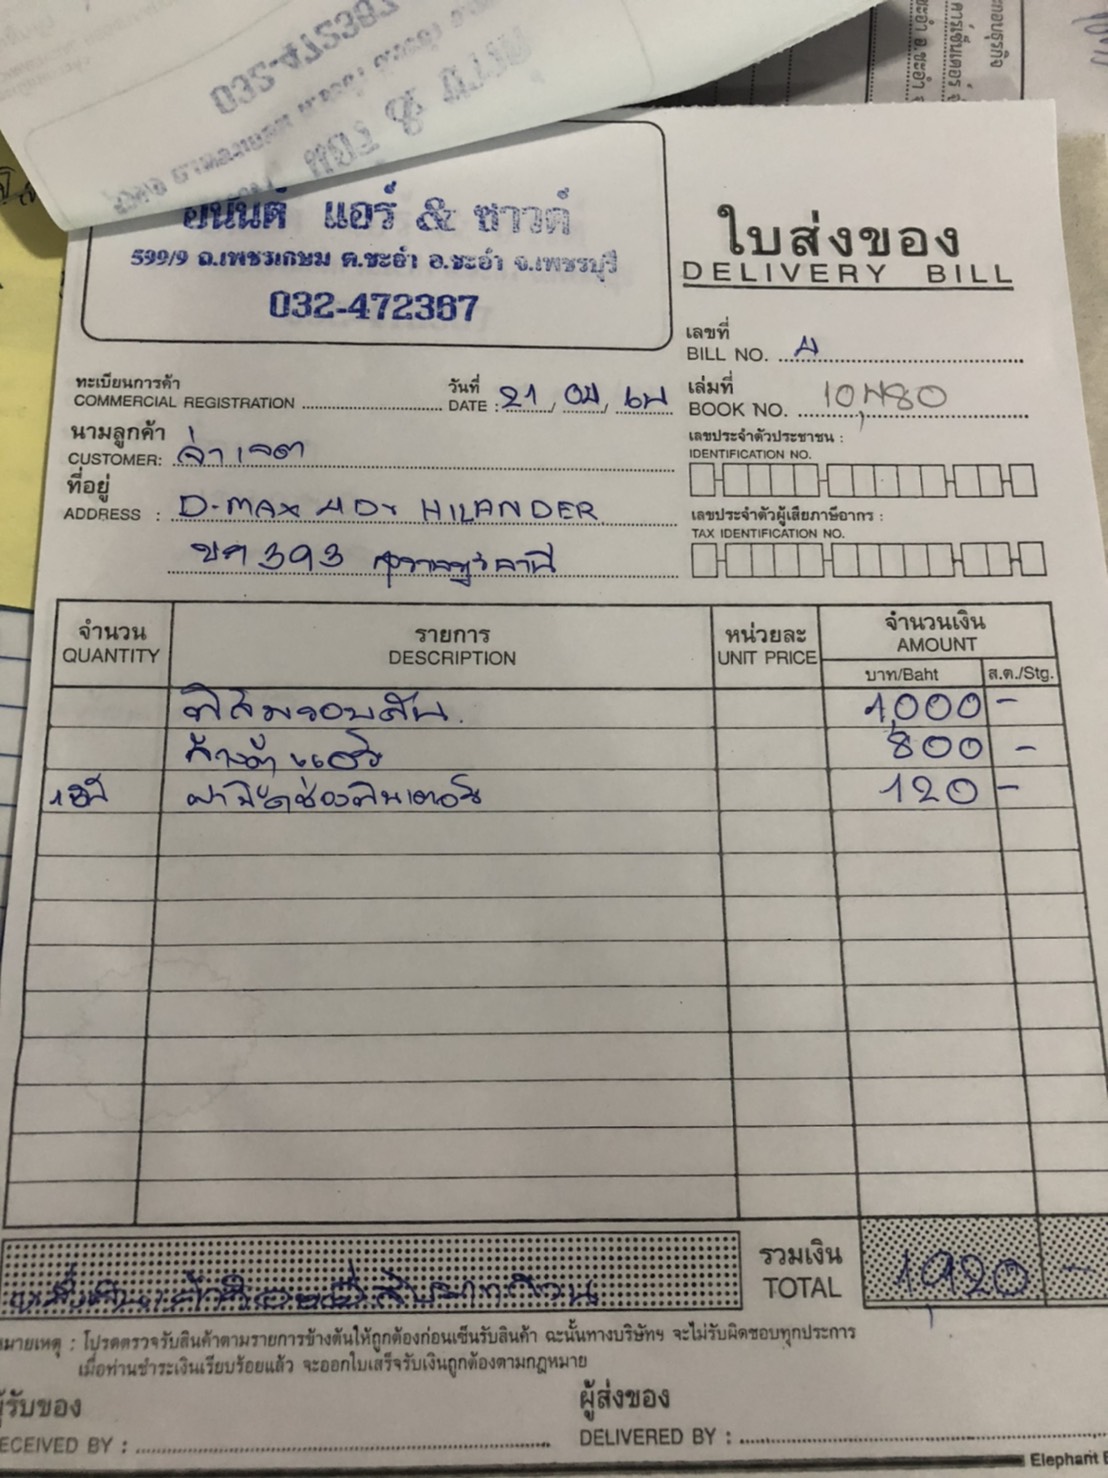 อนันต์ แอร์ & ซาวด์
599/9 ถ.เพชรเกษม ต.ชะอำ อ.ชะอำ จ.เพชรบุรี
032-472367
ใบส่งของ
DELIVERY BILL
เลขที่
BILL NO.
ทะเบียนการค้า
COMMERCIAL REGISTRATION
วันที่
DATE : 21
เล่มที่
BOOK NO.
นามลูกค้า
CUSTOMER: จ่าเจต
ที่อยู่
ADDRESS : D-MAX 4Dr HILANDER
393 สุราษฎร์ธานี
เลขประจำตัวประชาชน :
IDENTIFICATION NO.
เลขประจำตัวผู้เสียภาษีอากร :
TAX IDENTIFICATION NO.
จำนวน รายการ หน่วยละ จำนวนเงิน
QUANTITY DESCRIPTION UNIT PRICE AMOUNT
บาท/Baht ส.ต./Stg.
ฟิล์มรอบคัน 1,000 -
ล้างตู้แอร์ 800 -
120 -
รวมเงิน
TOTAL 1,920 -
หมายเหตุ : โปรดตรวจรับสินค้าตามรายการข้างต้นให้ถูกต้องก่อนเซ็นรับสินค้า ฉะนั้นทางบริษัทฯ จะไม่รับผิดชอบทุกประการ
เมื่อท่านชำระเงินเรียบร้อยแล้ว จะออกใบเสร็จรับเงินถูกต้องตามกฎหมาย
ผู้รับของ
RECEIVED BY :
ผู้ส่งของ
DELIVERED BY :
Elephant